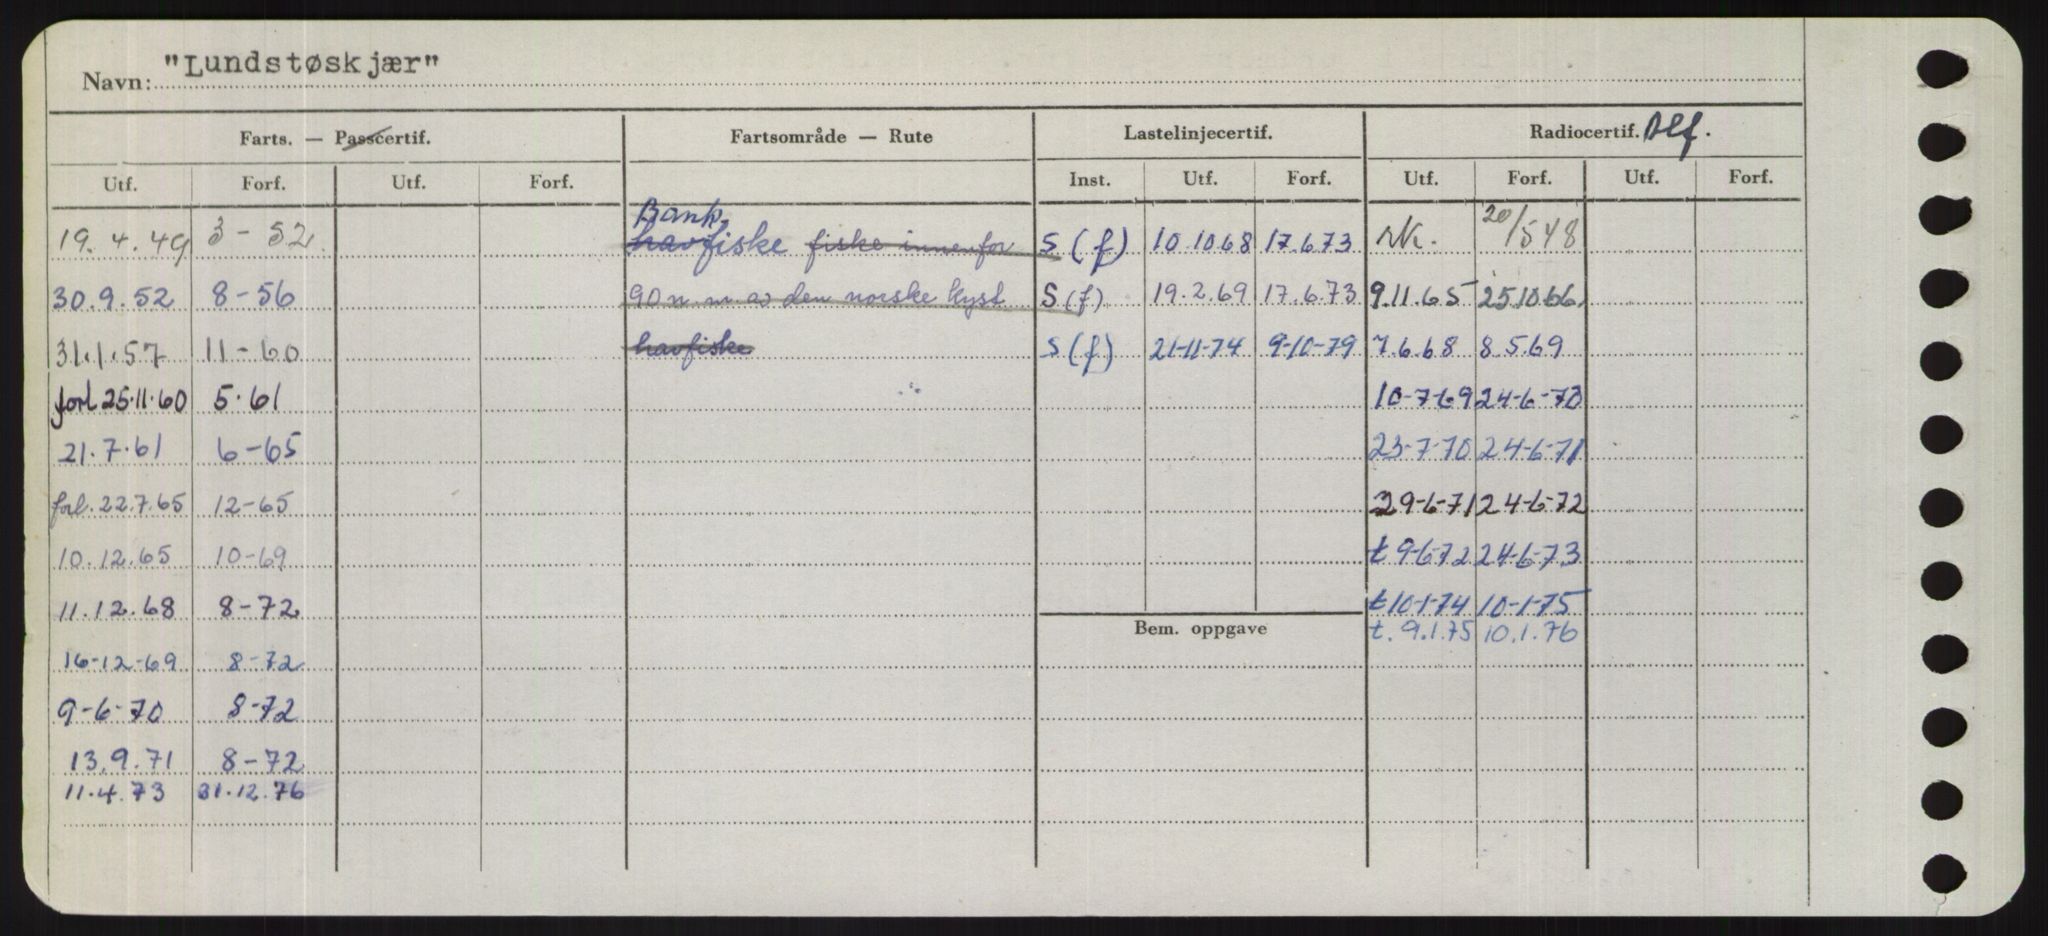 Navn: "Lundstøskjær"
Farts. — Passcertif. Fartsområde — Rute Lastelinjecertif. Radiocertif.
Utf. Forf. Utf. Forf. Inst. Utf. Forf. Utf. Forf. Utf. Forf.
Bank,
19.4.49 3-52 havfiske fiske innenfor S (f) 10.10.68 17.6.73 rk. 20/5 48
30.9.52 8-56 90 n.m. av den norske kyst S (f) 19.2.69 17.6.73 9.11.65 25.10.66
31.1.57 11-60 havfiske S (f) 21-11-74 9-10-79 7.6.68 8.5.69
forl 25.11.60 5.61 10-7-69 24-6-70
21.7.61 6-65 23-7-70 24-6-71
forl. 22.7.65 12-65 29-6-71 24-6-72
10.12.65 10-69 t 9-6-72 24-6-73
11.12.68 8-72 t 10-1-74 10-1-75
Bem. oppgave t. 9.1.75 10.1.76
16-12-69 8-72
9-6-70 8-72
13.9.71 8-72
11.4.73 31.12.76